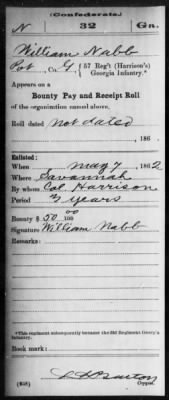 (Confederate)
N 32 Ga.
William Nabb
Pvt, Co. G, 57 Reg't (Harrison's) Georgia Infantry.*
Appears on a
Bounty Pay and Receipt Roll
of the organization named above.
Roll dated not dated
, 186
Enlisted:
When May 7, 1862
Where Savannah
By whom Col. Harrison
Period 3 years
Bounty $ 50 00/100
Signature William Nabb
Remarks:
*This regiment subsequently became the 32d Regiment Georgia Infantry.
Book mark:
Barton
(658) Copyist.